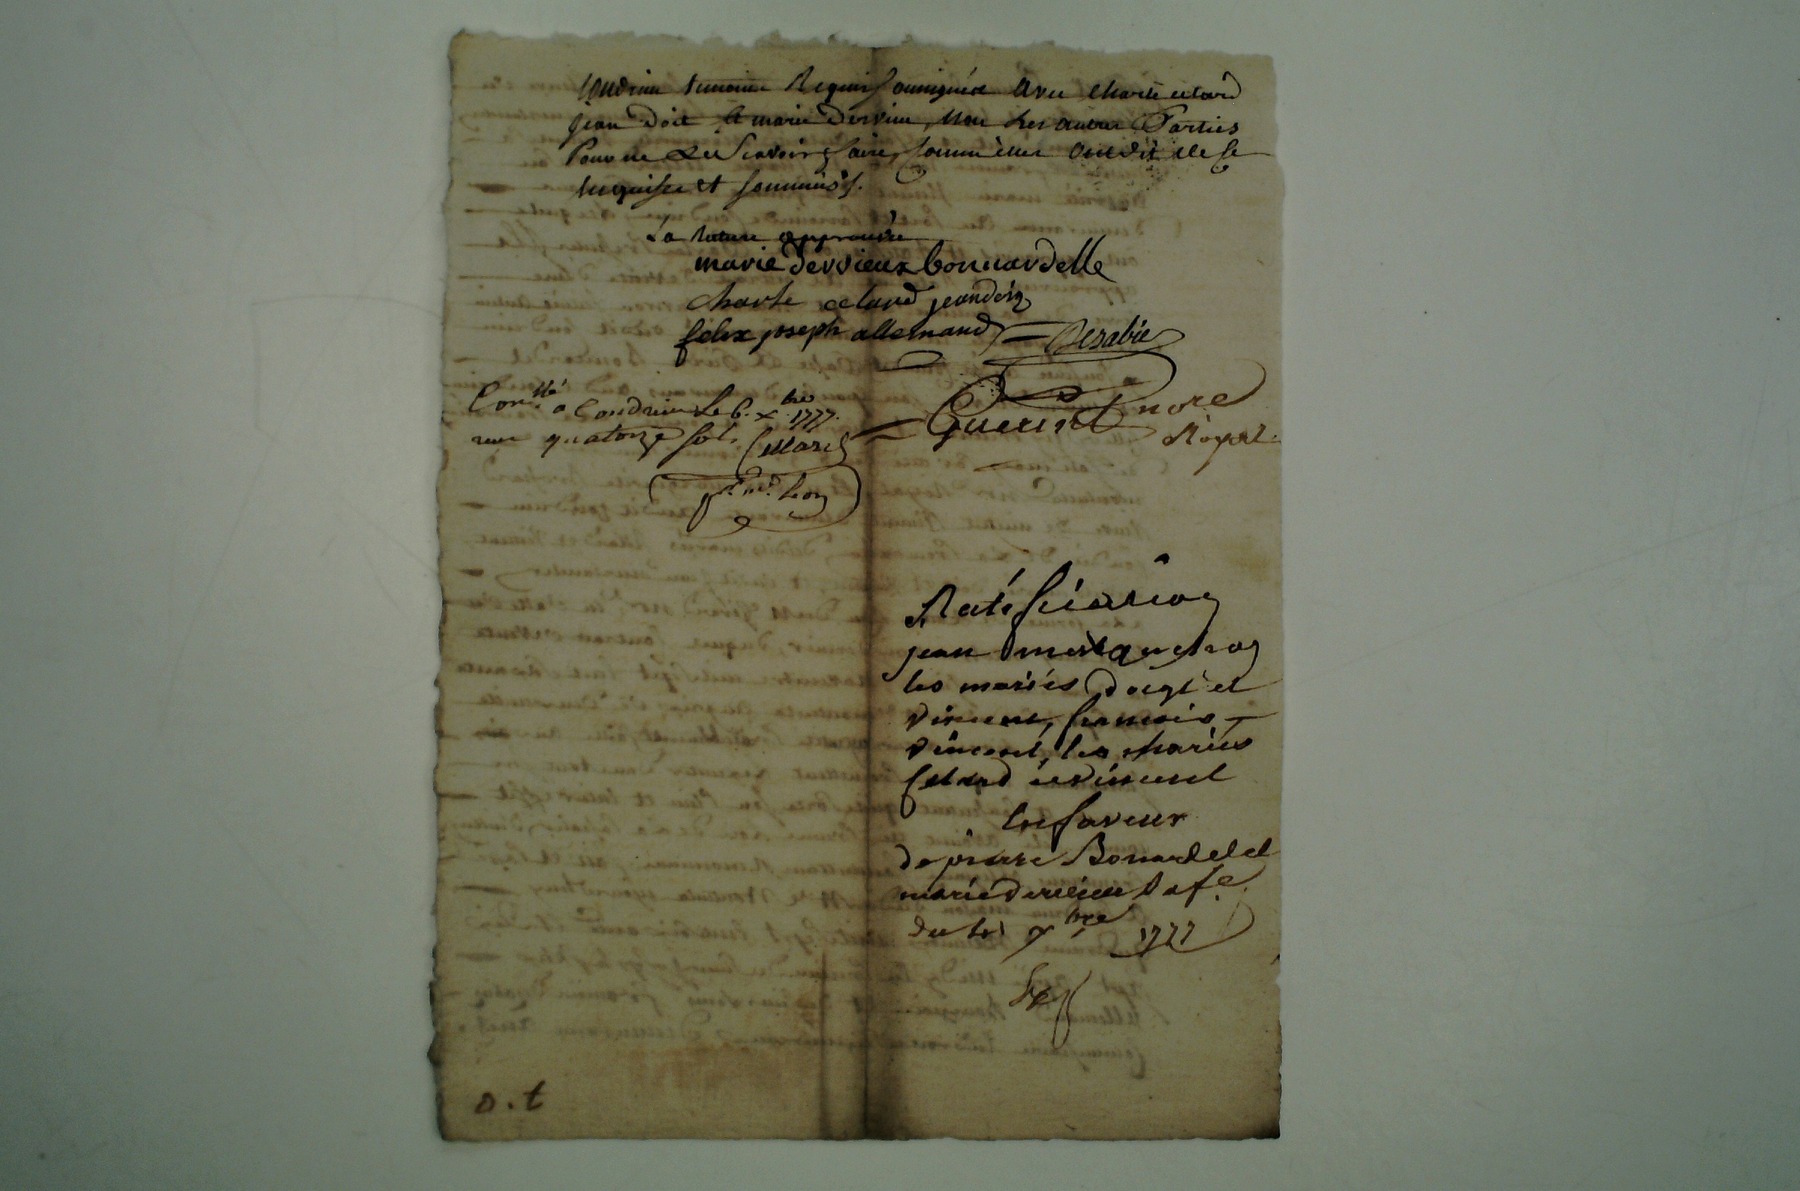 Condrieu temoins Requis soussignés avec charle celard
jean doit & marie dervieu, non les autres Parties
Pour ne le sçavoir faire, comme elles ont dit de ce
requises et sommées.
La rature approuvée
marie dervieux bonnardelle
charle celard jean doiz
felix joseph allemand Desabie
Guerin nore
Royal
Con.llé a Condrieu Le 6. Xbre 1777.
reçu quatorze sols Cellard
Ratification
jean
les mariés doegt et
vincent, francois
vincent, les mariés
Cellard et vincent
en faveur
de pierre Bonardel et
marie dervieux sa fe.
du 1777
D.t